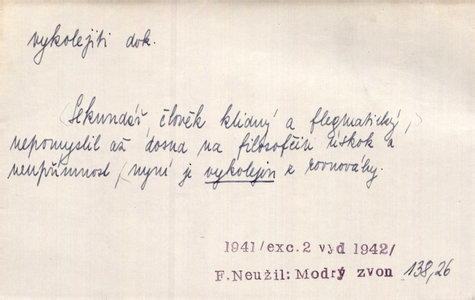 vykolejiti dok.
(Sekundář, člověk klidný a flegmatický,)
nepomyslil až dosud na filosofčin úskok a
neupřímnost, nyní je vykolejen z rovnováhy.
1941/exc.2 vyd 1942/
F.Neužil: Modrý zvon 138,26